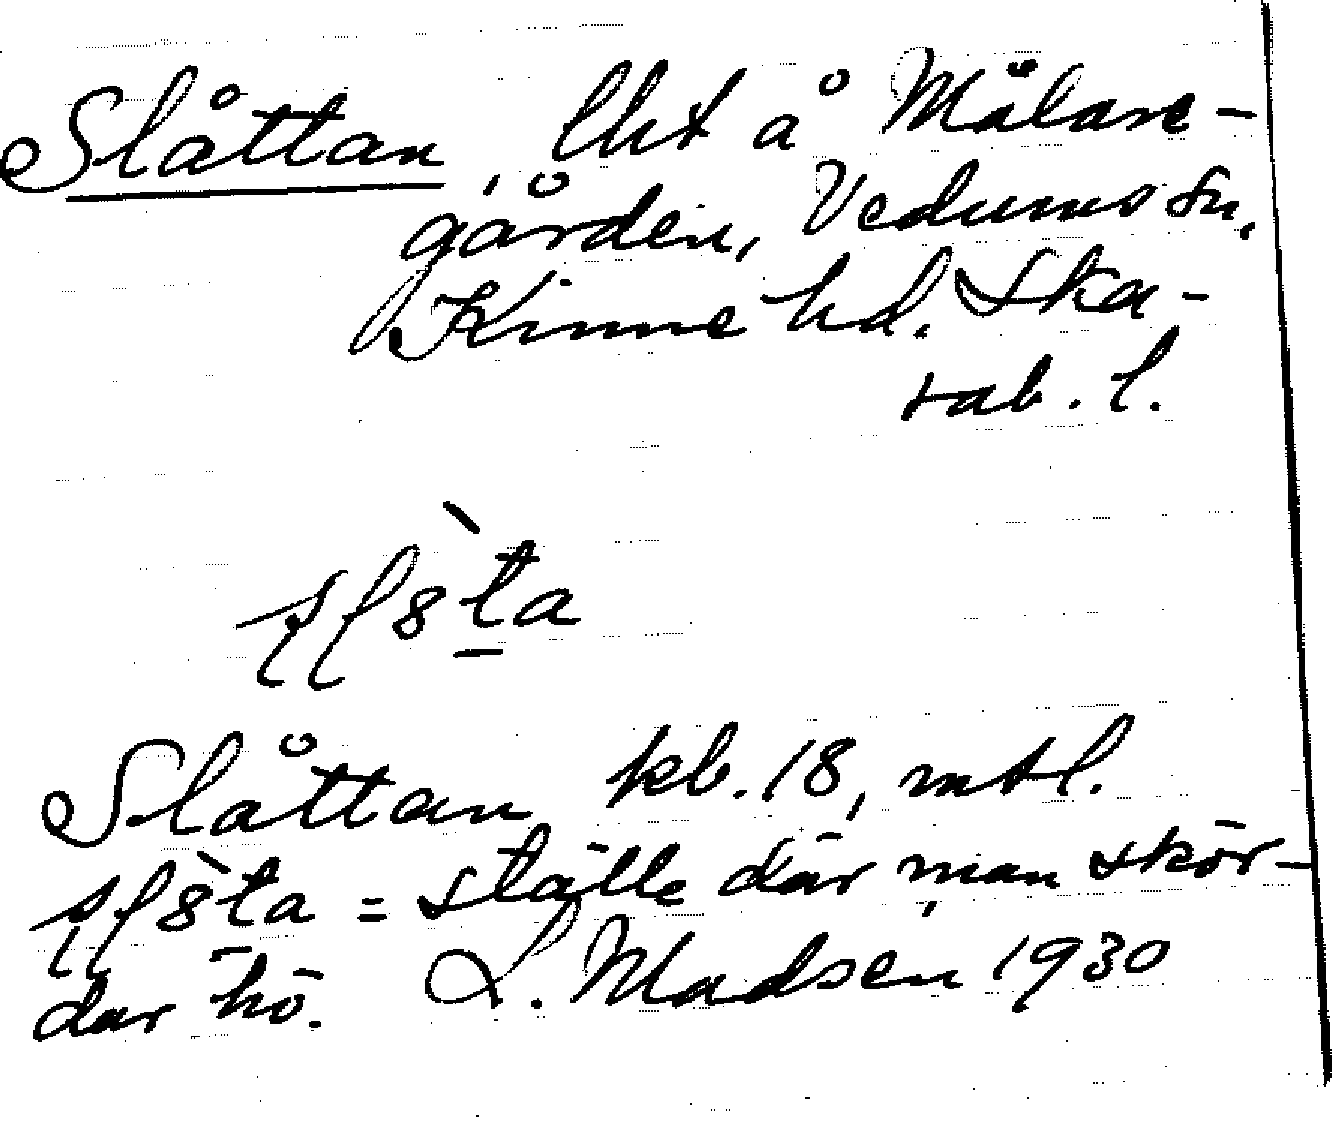 Slåttan, lht å Mälare-
gården, Vedums sn,
Kinne hd. Ska-
rab. l.
Slåttan kb. 18, mtl.
= ställe där man skör-
dar hö. L. Madsén 1930